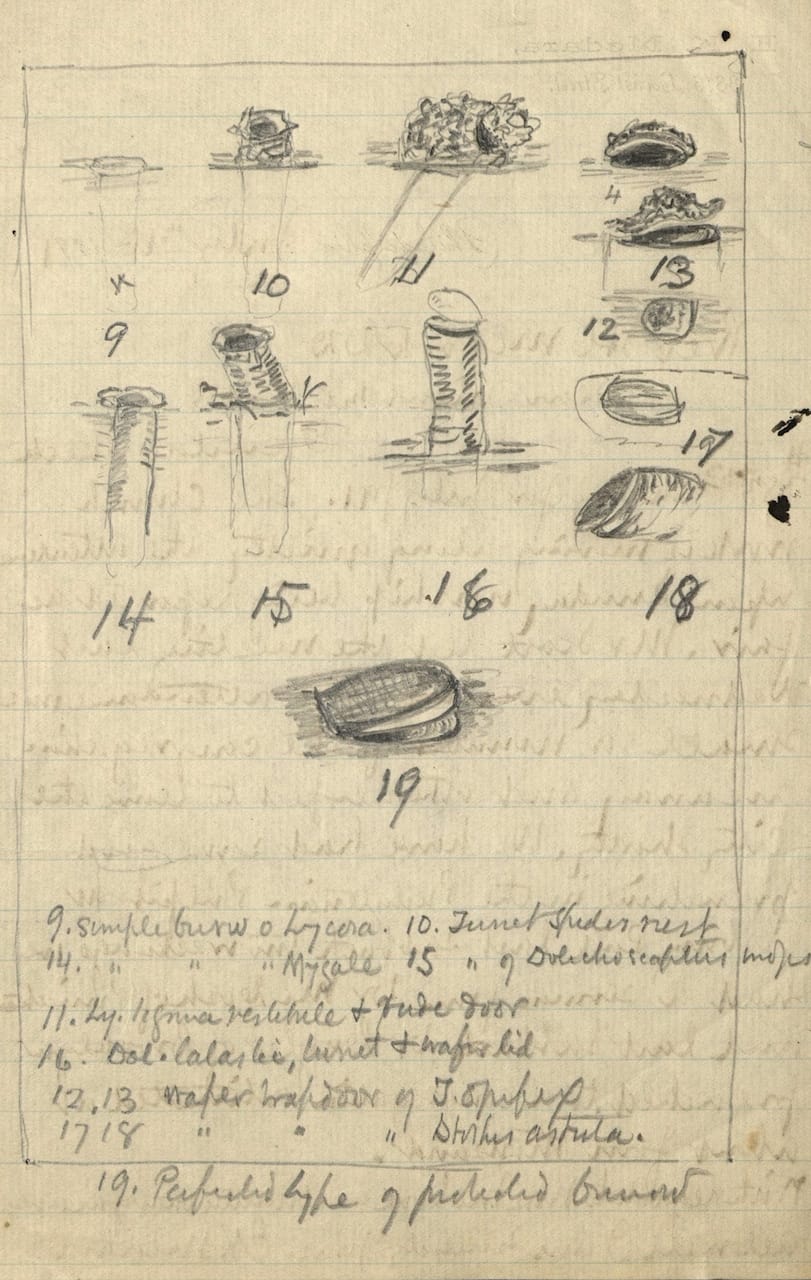 10
11
4
13
9
12
17
14
15
.16
18
19
9. Simple burw o Lycosa. 10. Turret Spiders nest
14. " " " Mygale 15 " of Dolichoscaptus inops
11. Ly. vestibule & rude door
16. Dol. turret & wafer lid
12, 13 wafer trapdoor of T. opifex
17 18 " " " astuta.
19. Perfected type of protected burrow